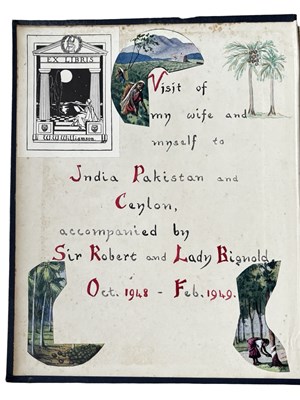 EX LIBRIS
W.W.Williamson
Visit of
my wife and
myself to
India Pakistan and
Ceylon,
accompanied by
Sir Robert and Lady Bignold.
Oct. 1948 - Feb. 1949.